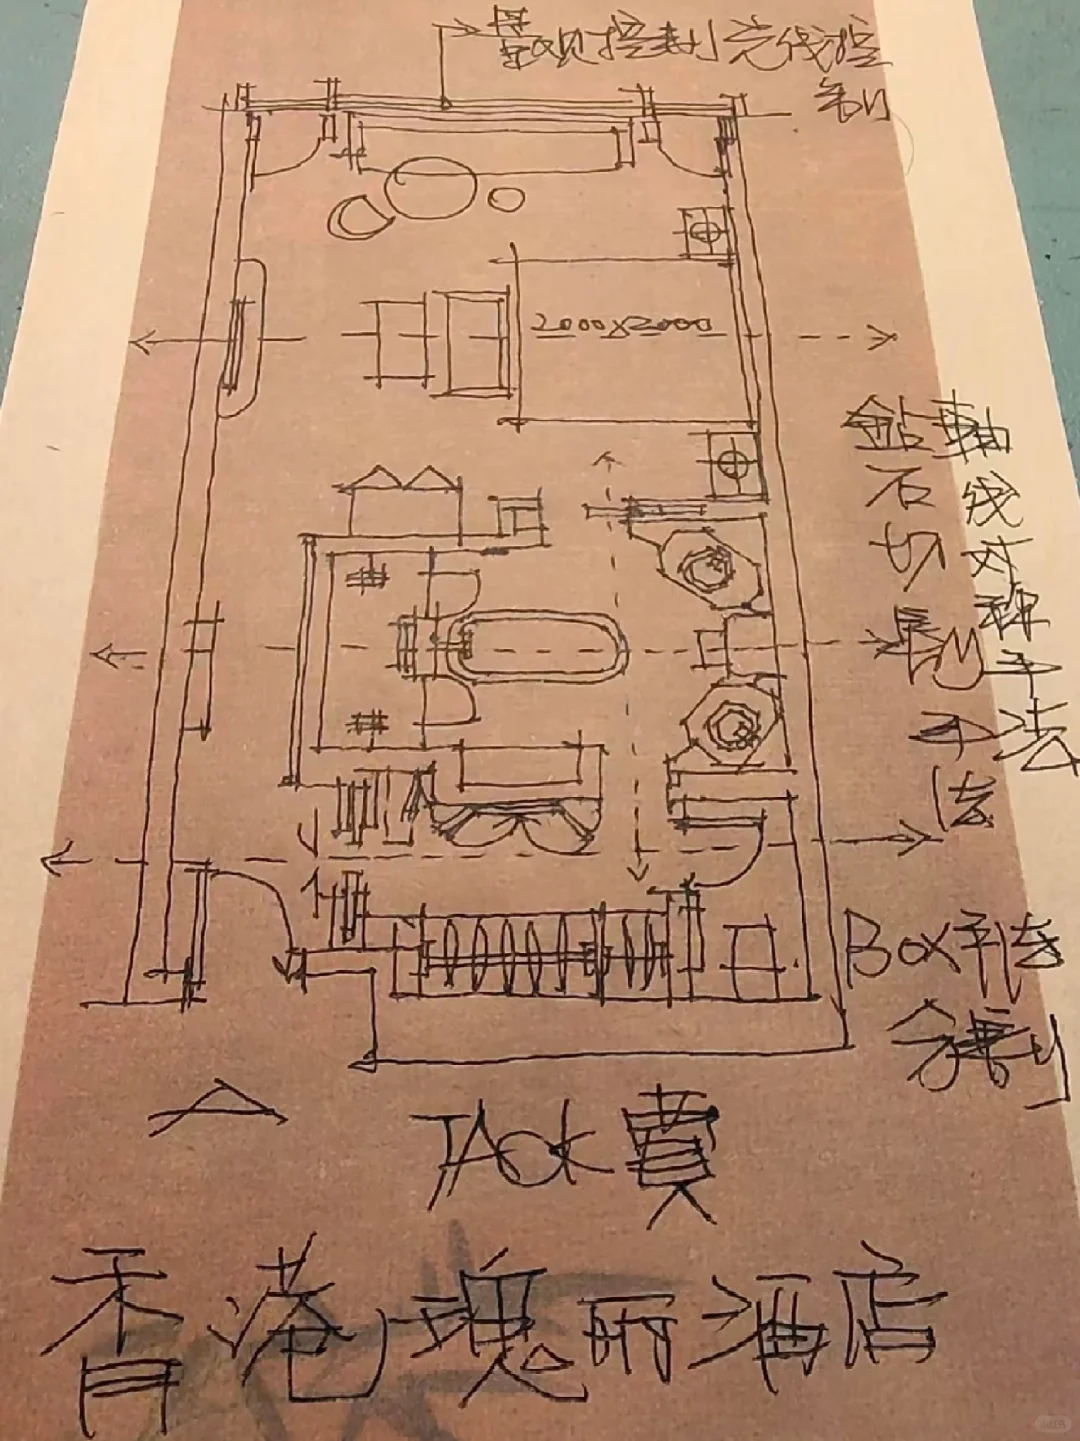 景观控制 光线控
制
2000X2000
钻石切割手法
軸线对称手法
BOX手法
分割
TAOK費
香港瑰丽酒店